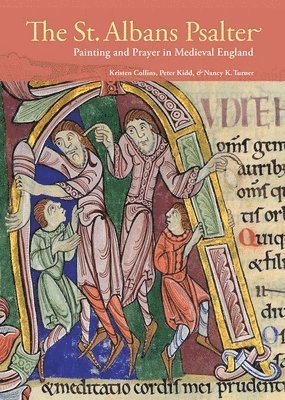 The St. Albans Psalter
Painting and Prayer in Medieval England
Kristen Collins, Peter Kidd, & Nancy K. Turner
UDIEH
oms gen
aurib
oms
tis orb
Quiq
&filii
& meditatio cordis mei prudenti